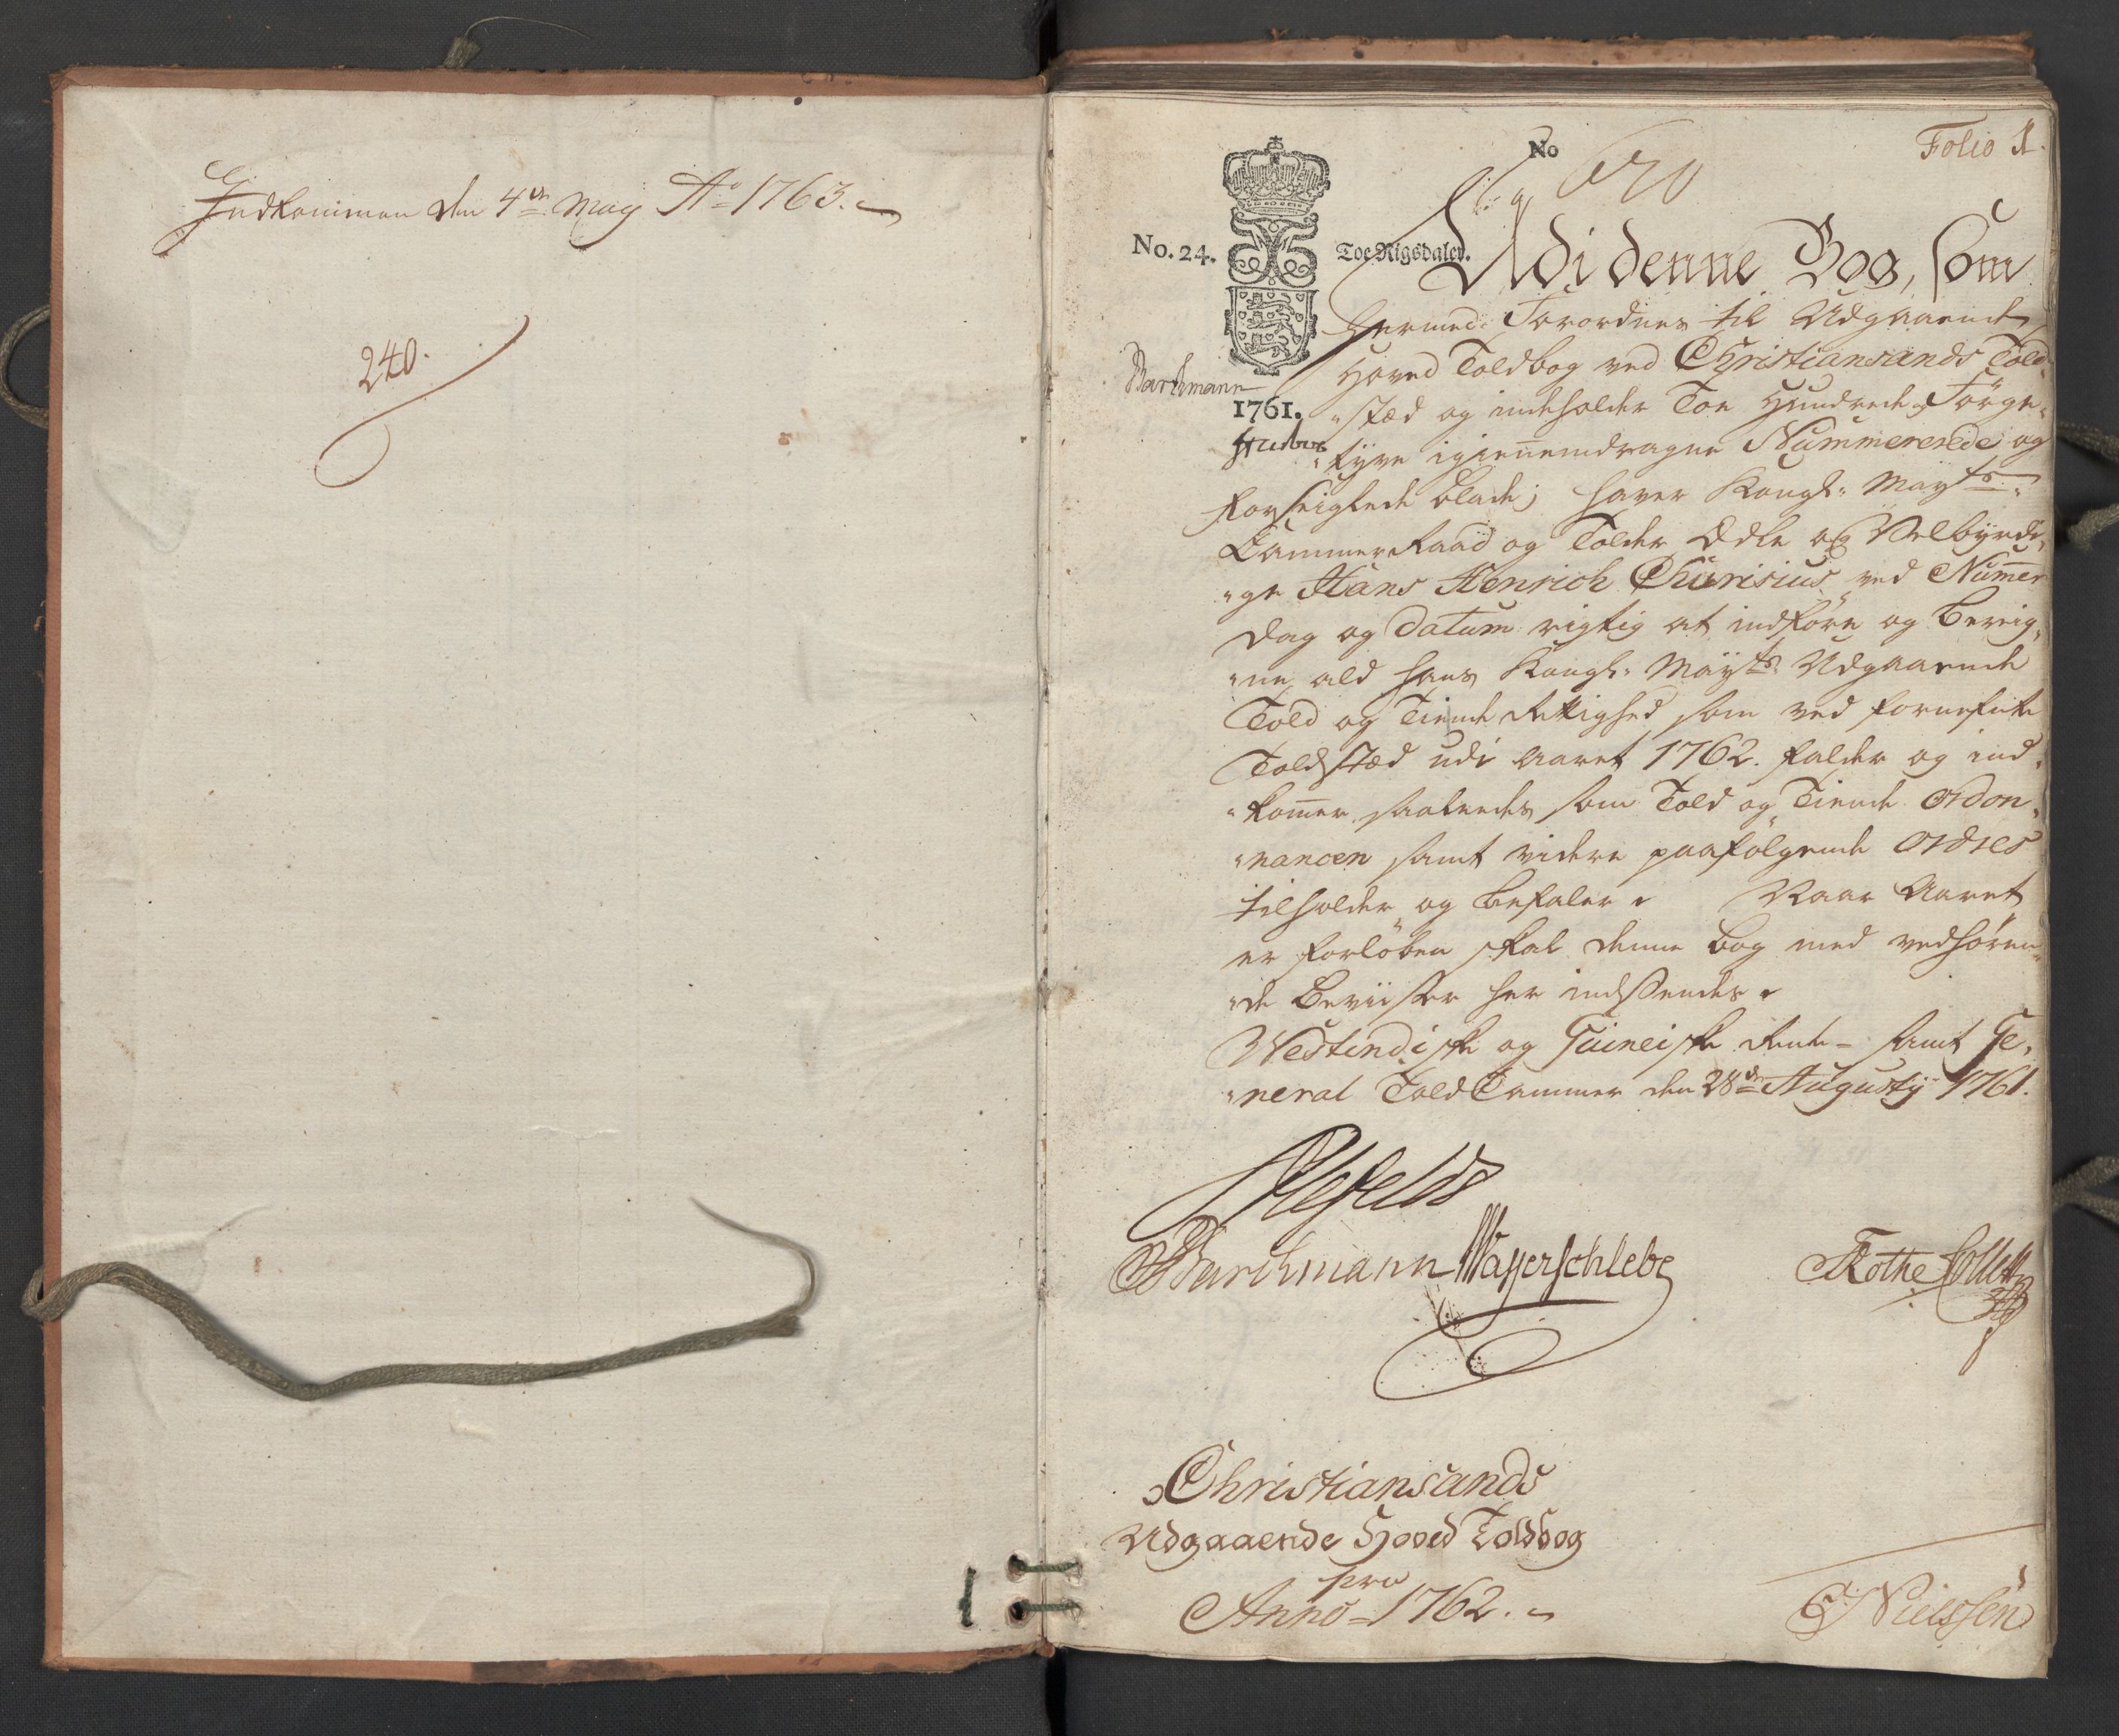 Indkommen den 4de May Ao 1763.
240.
Folio 1.
No 620
No. 24.
Toe Rigsdaler.
Udi denne Bog, som
hermed Forordnes til Udgaaende
Hoved Toldbog ved Christiansands Told-
Barchmann
1761.
stæd og indeholder Toe Hundrede Förge-
tyve igiennemdragne Nummererede og
forseiglede blade; haver Kongl: Mayts:
Cammer Raad og Tolder Edle og Velbyrdi-
ge Hans Henrich Thurisius ved Numer
Dag og Datum rigtig at indföre og bereig-
ne ald hans Kongl: Mayts: Udgaaende
Told og Tiende Rettighed som ved fornefnte
Toldstæd udi Aaret 1762. falder og ind-
komer, saaledes som Told og Tiende Ordon-
nancen samt videre paafölgende Ordres
tilholder og befaler. Naar Aaret
er forlöben skal denne bog med vedhören-
de Beviiser her indsendes.
Westindiske og Guineiske Rente- samt Ge-
neral Told Cammer den 28de Augusty 1761.
Ahlefeldt
Barchmann Wasserschlebe
Rothe Collett
Christiansands
Udgaaende Hoved Toldbog
pro
Anno 1762.
Nielssen